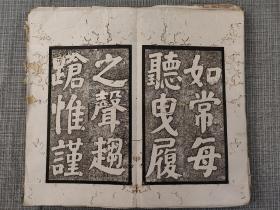 如常每
聽曳履
之聲趨
蹌惟謹